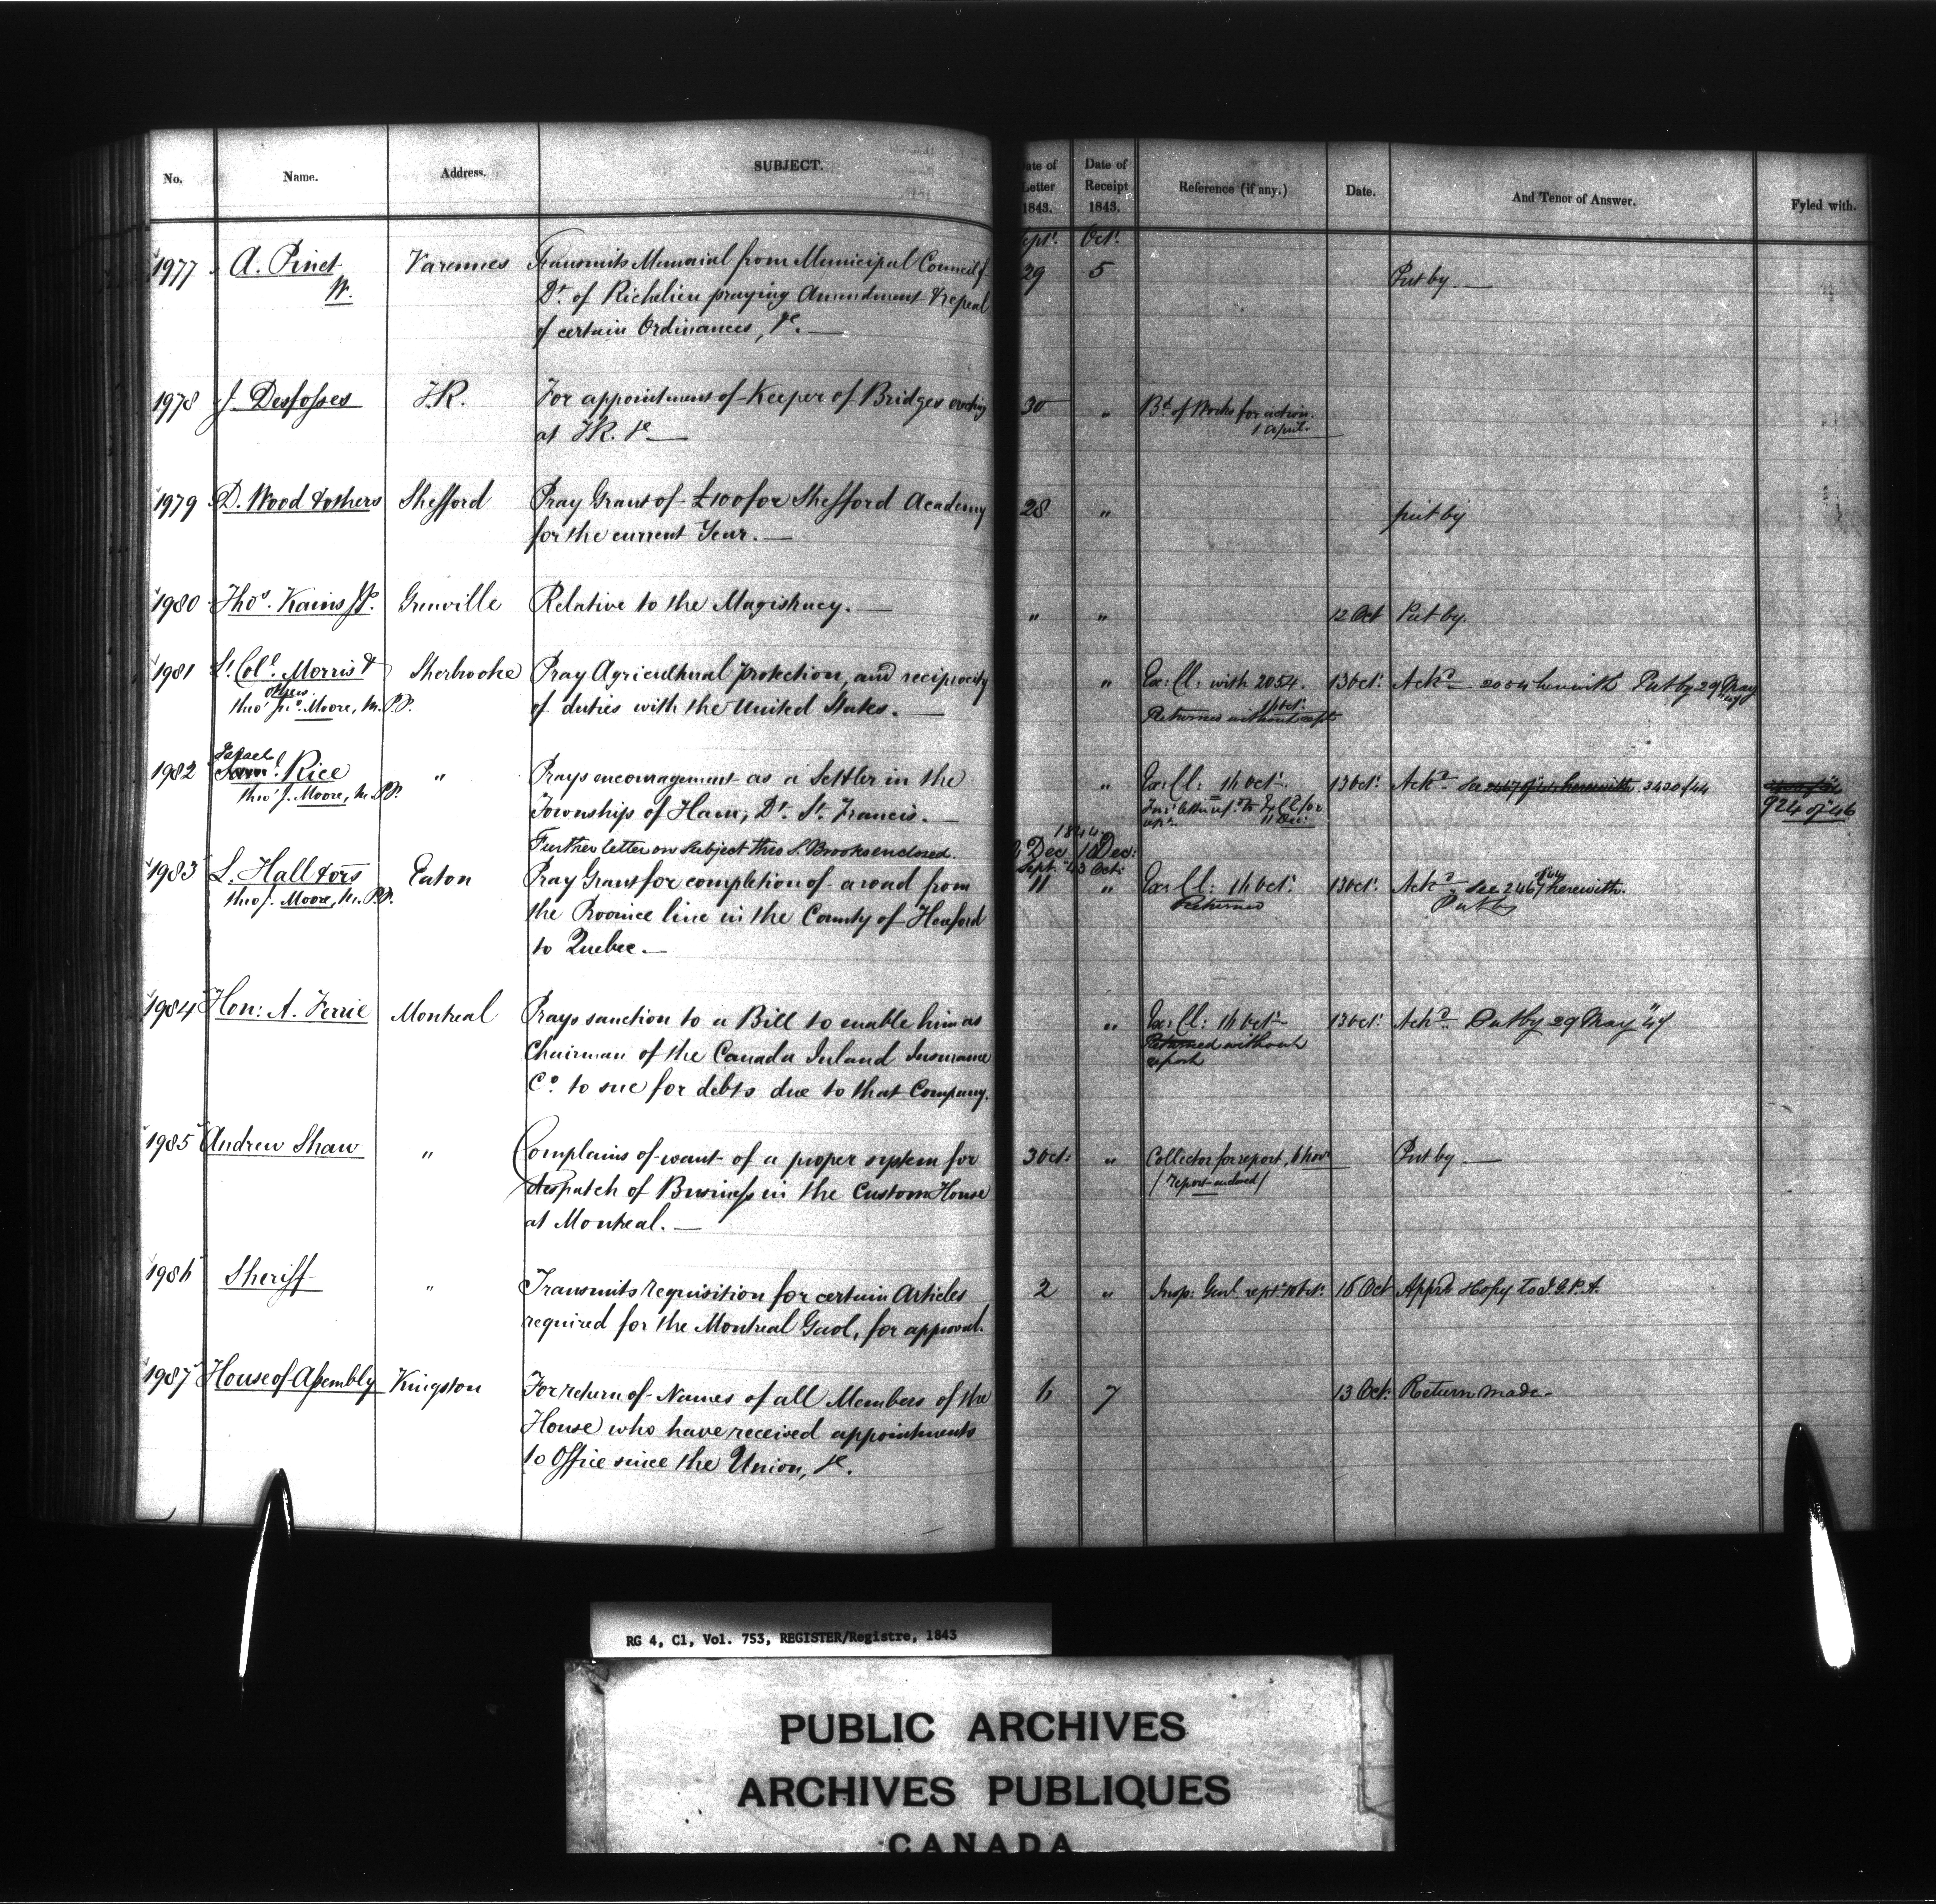 No. Name. Address. SUBJECT. Date of Letter 1843. Date of Receipt 1843. Reference (if any.) Date. And Tenor of Answer. Fyled with.
Sept. Oct.
1977 A. Pinet Varennes Transmits Memorial from Municipal Council of 29 5 Put by
W. Dt. of Richelieu praying Amendment & repeal
of certain Ordinances, &c.
1978 J. Desfosses T.R. For appointment of Keeper of Bridges erecting 30 " Bd. of Works for action.
at T.R. &c 1 april.
1979 D. Wood & others Shefford Pray Grant of £100 for Shefford Academy 28 " put by
for the current Year.
1980 Thos. Kains J.P. Grenville Relative to the Magistracy. " " 12 Oct Put by.
1981 Lt. Col. Morris & Sherbrooke Pray Agricultural protection, and reciprocity " Ex: Cl: with 2054. 13 Oct. Ackd. 2054 herewith Put by 29 May
others
thro' Jno. Moore, M.P.P. of duties with the United States. Returned without rept
1982 Israel Rice " Prays encouragement as a Settler in the " Ex: Cl: 11 Oct. 13 Oct. Ackd. See 3430 of 44
thro' J. Moore, M.P.P. Township of Ham, Dt. St. Francis. 11 Dec: 924 of 46
1844
Further letter on subject thro S. Brooks enclosed. Dec 10 Dec:
Sept. 43 Oct:
1983 L. Hall & ors Eaton Pray Grant for completion of a road from 11 " Ex: Cl: 11 Oct. 13 Oct. Ackd. See 2467 herewith.
thro J. Moore, M.P.P. the Province line in the County of Hereford Returned Put by
to Quebec.
1984 Hon: A. Ferrie Montreal Prays sanction to a Bill to enable him as " Ex: Cl: 11 Oct. 13 Oct. Ackd. Put by 29 May "47
Chairman of the Canada Inland Insurance Returned without
Co. to sue for debts due to that Company. report
1985 Andrew Shaw " Complains of want of a proper system for 3 Oct: " Collector for report, 6 Nov Put by
despatch of Business in the Custom House (report enclosed)
at Montreal.
1986 Sheriff " Transmits requisition for certain Articles 2 " Insp: Genl. rept. 10 Oct. 16 Oct Appd. & Copy to I.G.P.A.
required for the Montreal Gaol, for approval.
1987 House of Assembly Kingston For return of Names of all Members of the 6 7 13 Oct. Return made
House who have received appointments
to Office since the Union, &c.
RG 4, C1, Vol. 753, REGISTER/Registre, 1843
PUBLIC ARCHIVES
ARCHIVES PUBLIQUES
CANADA